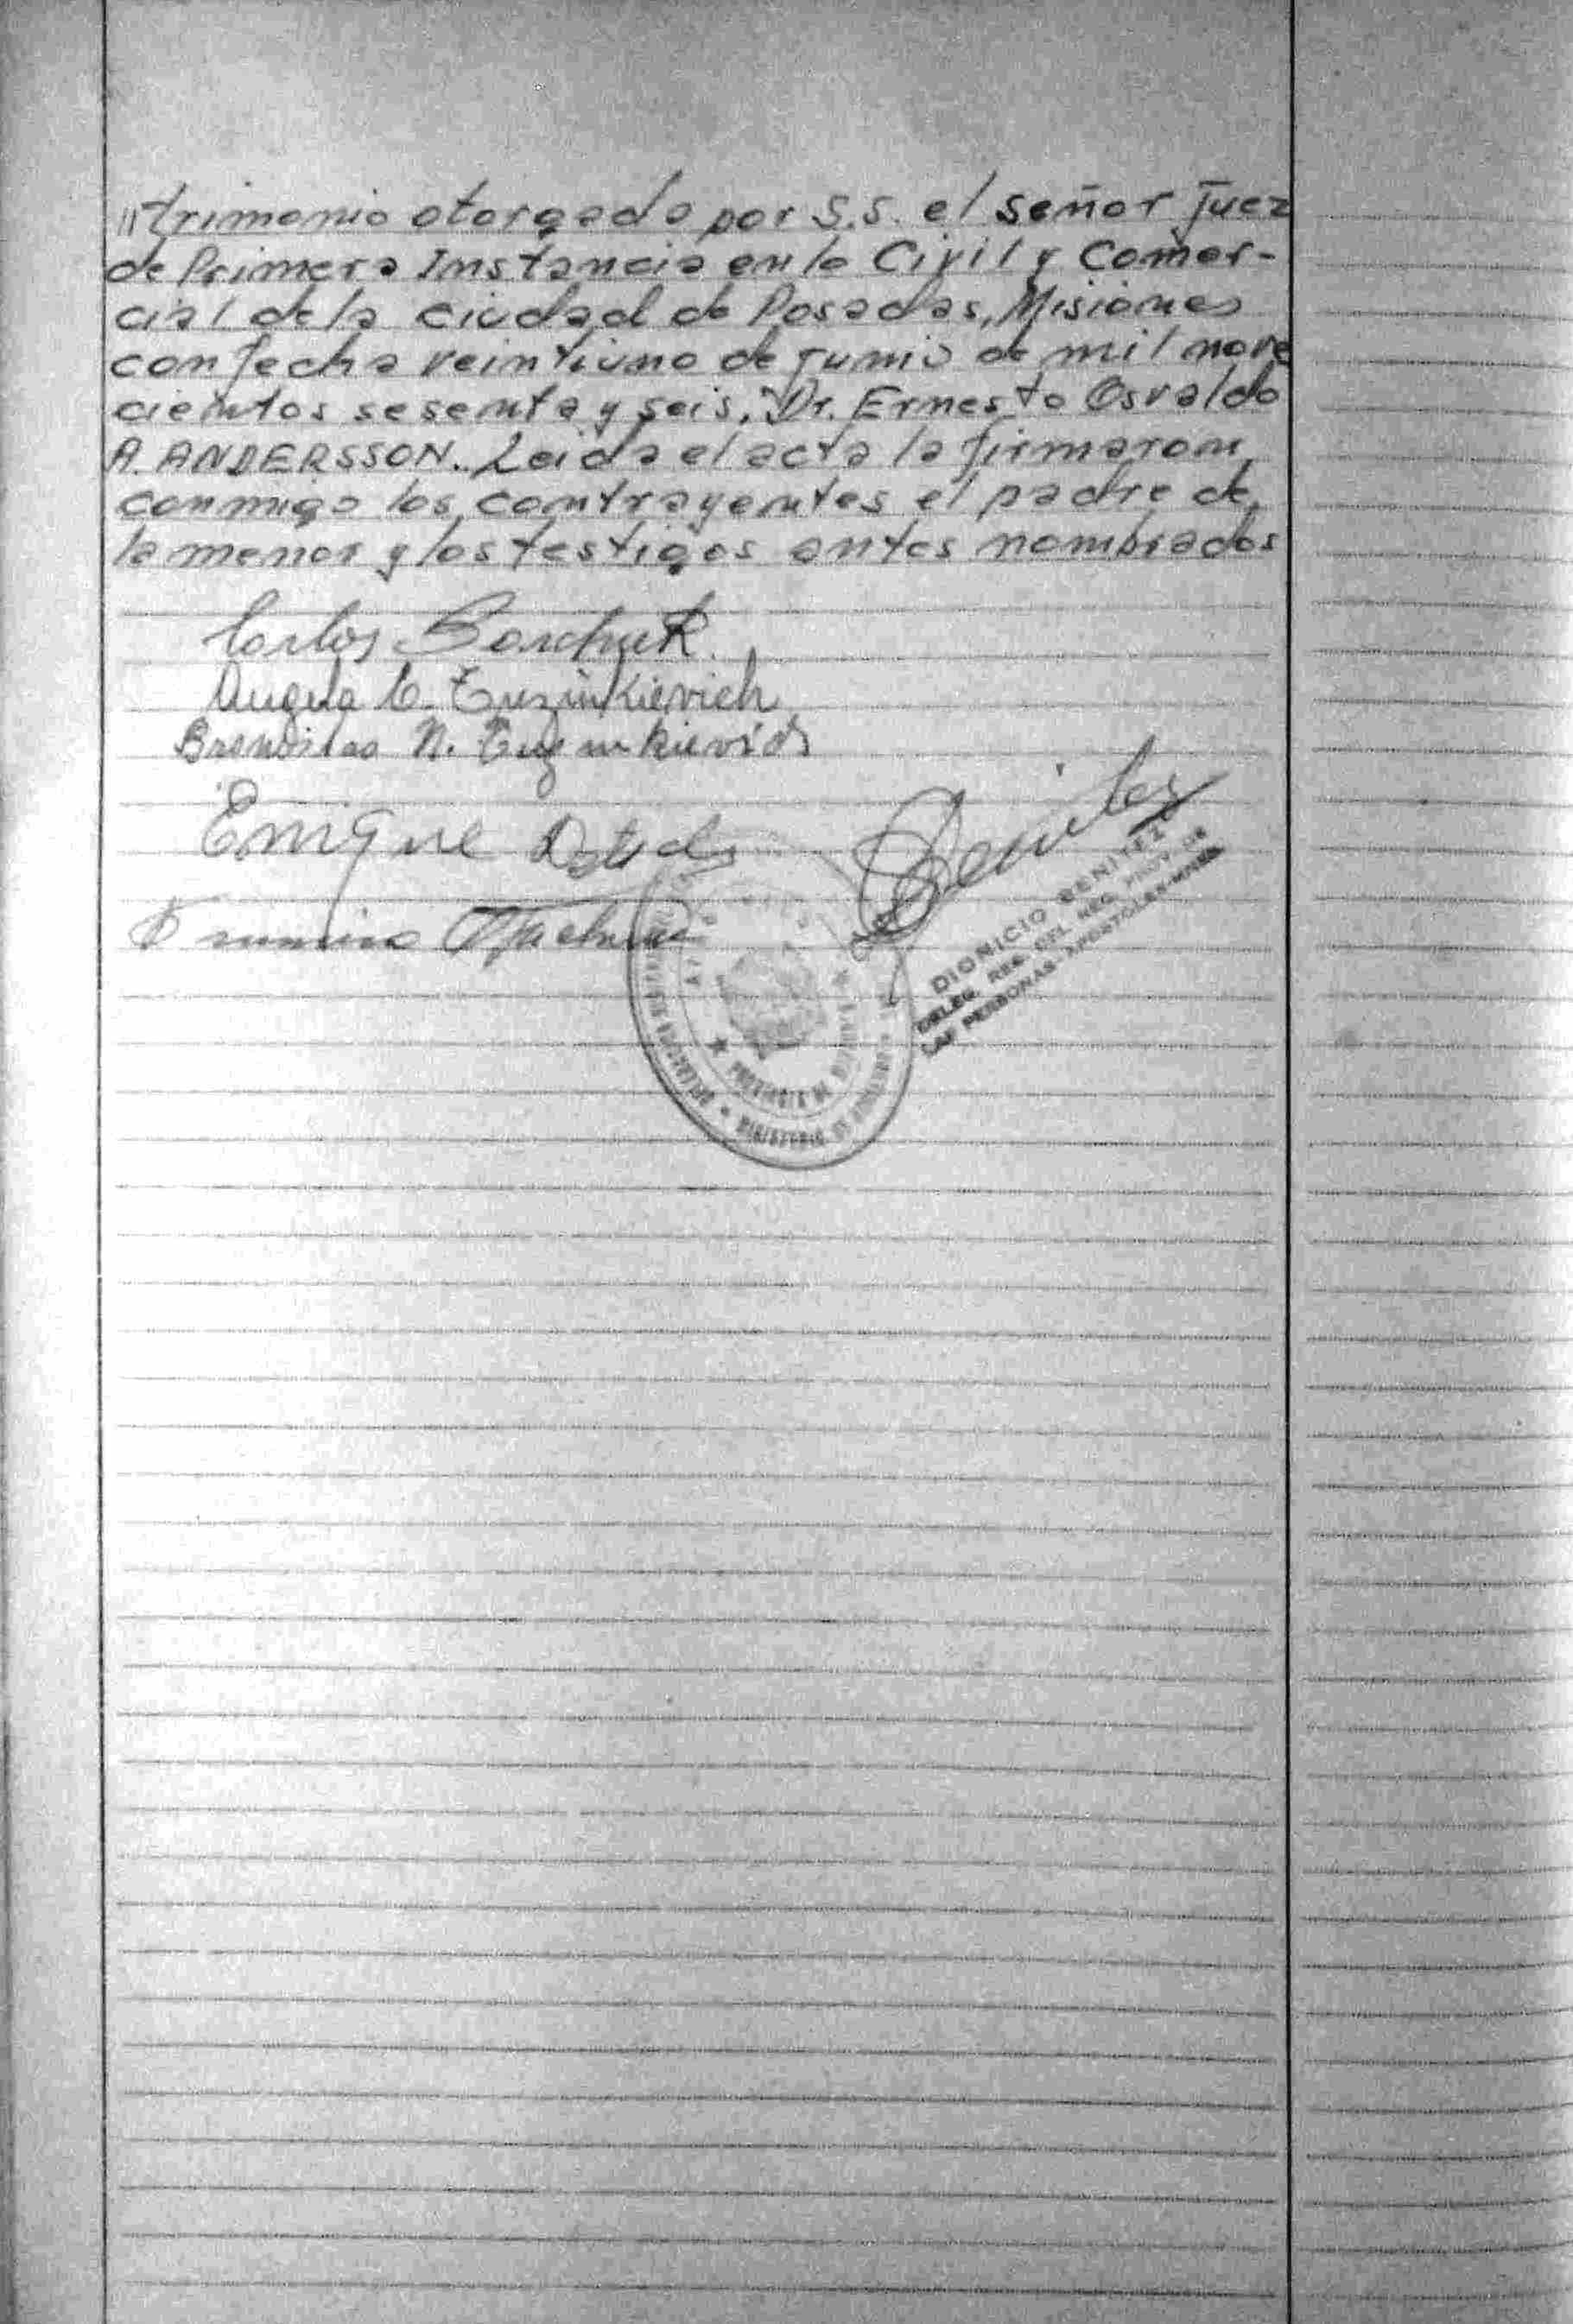 //trimonio otorgado por S.S. el señor Juez
de Primera Instancia en lo Civil y Comer-
cial de la ciudad de Posadas, Misiones
con fecha veintiuno de junio de mil nove
cientos sesenta y seis, Dr. Ernesto Osvaldo
A. ANDERSSON. Leida el acta la firmaron
conmigo los contrayentes el padre de
la menor y los testigos antes nombrados
Carlos
Angela C. Tuzinkievich
N.
Enrique
DIONICIO BENITEZ
DELEG. REG. DEL REG. PROV. DE
LAS PERSONAS-APOSTOLES-MNES
PROVINCIA DE MISIONES
MINISTERIO DE GOBIERNO